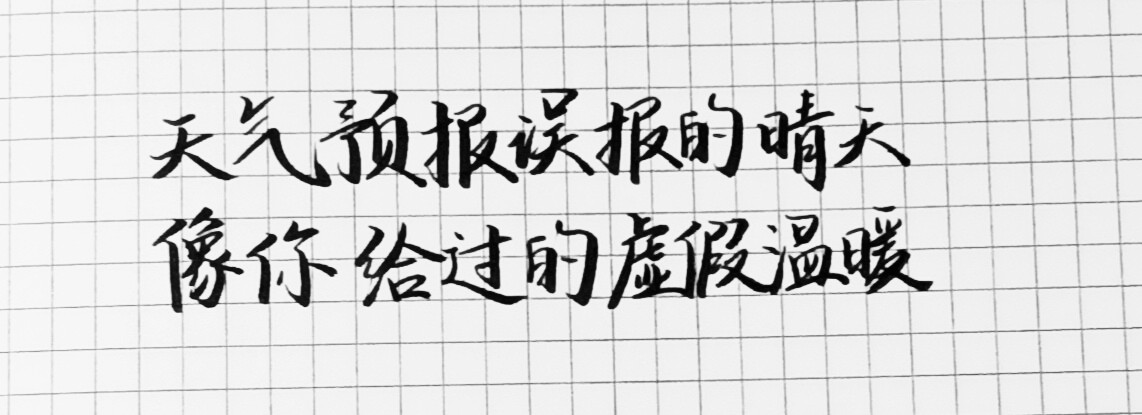 天气预报误报的晴天
像你给过的虚假温暖